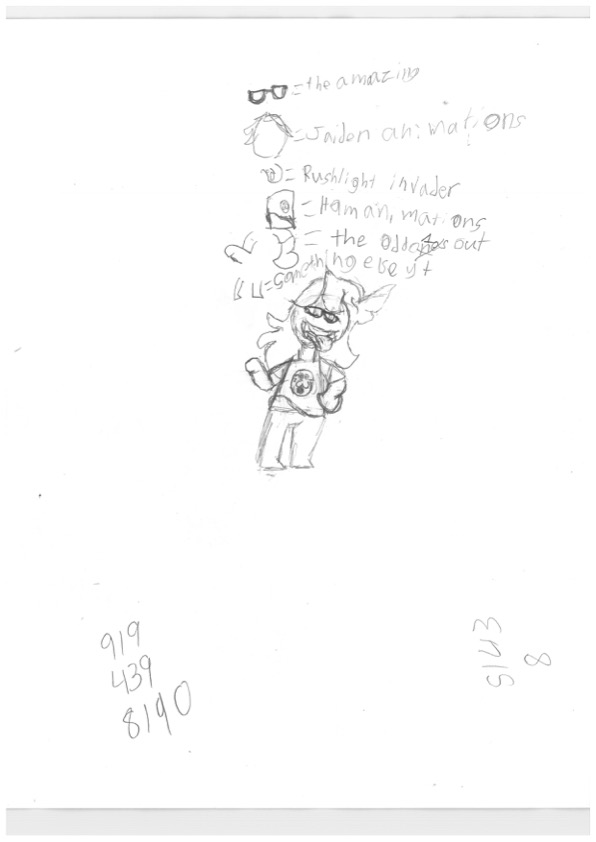 = the amazing
= Jaiden animations
= Rushlight invader
= Haman, mations
= the odd1s out
= Something else yt
919
439
8190
5143
8